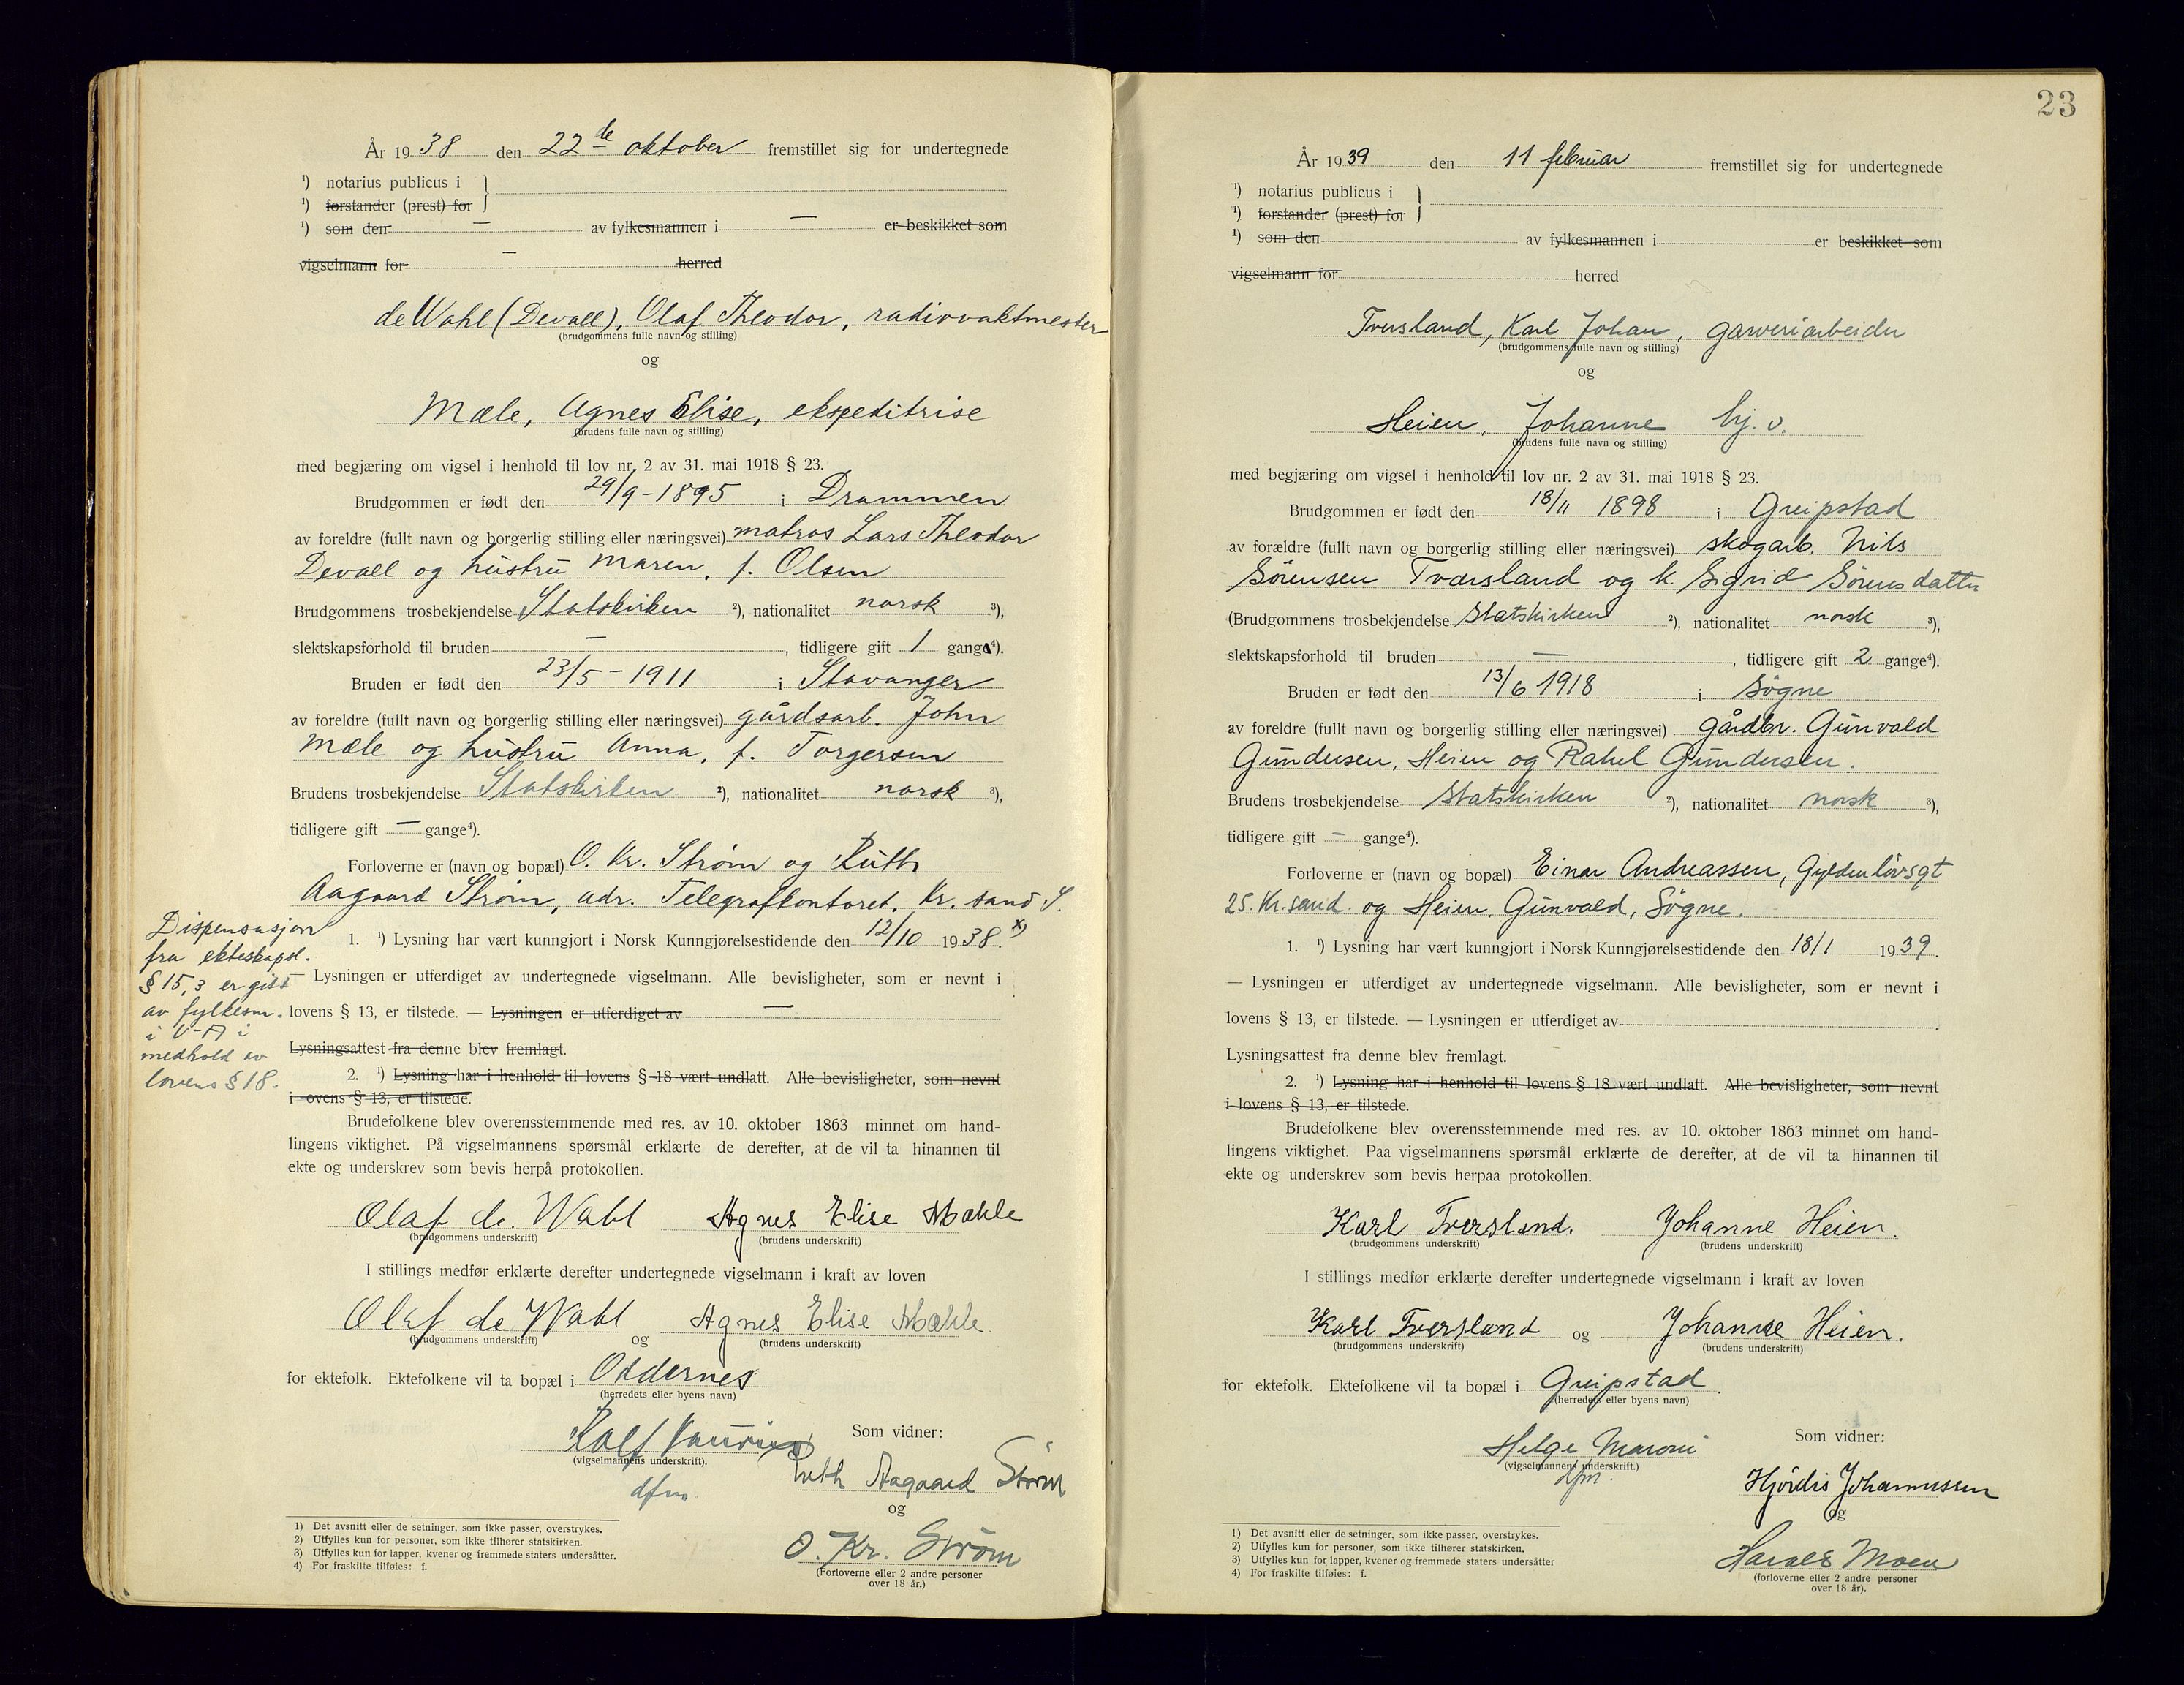 År 1938 den 22de oktober fremstillet sig for undertegnede
¹) notarius publicus i
¹) forstander (prest) for
¹) som den — av fylkesmannen i — er beskikket som
vigselmann for — herred
de Wahl (Devall), Olaf Theodor, radiovaktmester
(brudgommens fulle navn og stilling)
og
Mæle, Agnes Elise, ekspeditrise
(brudens fulle navn og stilling)
med begjæring om vigsel i henhold til lov nr. 2 av 31. mai 1918 § 23.
Brudgommen er født den 29/9 - 1895 i Drammen
av foreldre (fullt navn og borgerlig stilling eller næringsvei) matros Lars Theodor
Devall og hustru Maren, f. Olsen
Brudgommens trosbekjendelse Statskirken ²), nationalitet norsk ³),
slektskapsforhold til bruden — , tidligere gift 1 gang⁴).
Bruden er født den 23/5 - 1911 i Stavanger
av foreldre (fullt navn og borgerlig stilling eller næringsvei) gårdsarb. John
Mæle og hustru Anna, f. Torgersen
Brudens trosbekjendelse Statskirken ²), nationalitet norsk ³),
tidligere gift — gange⁴).
Forloverne er (navn og bopæl) O. Kr. Strøm og Ruth
Aagaard Strøm, adr. Telegrafkontoret, Kr. sand S.
1. ¹) Lysning har vært kunngjort i Norsk Kunngjørelsestidende den 12/10 1938. x)
— Lysningen er utferdiget av undertegnede vigselmann. Alle bevisligheter, som er nevnt i
lovens § 13, er tilstede. — Lysningen er utferdiget av —
Lysningsattest fra denne blev fremlagt.
2. ¹) Lysning har i henhold til lovens § 18 vært undlatt. Alle bevisligheter, som nevnt
i ovens § 13, er tilstede.
Dispensasjon
fra ekteskapsl.
§ 15, 3 er gitt
av fylkesm.
i V-A i
medhold av
lovens § 18.
Brudefolkene blev overensstemmende med res. av 10. oktober 1863 minnet om hand-
lingens viktighet. På vigselmannens spørsmål erklærte de derefter, at de vil ta hinannen til
ekte og underskrev som bevis herpå protokollen.
Olaf de Wahl Agnes Elise Mæhle
(brudgommens underskrift) (brudens underskrift)
I stillings medfør erklærte derefter undertegnede vigselmann i kraft av loven
Olaf de Wahl og Agnes Elise Mæhle.
(brudgommens underskrift) (brudens underskrift)
for ektefolk. Ektefolkene vil ta bopæl i Oddernes
(herredets eller byens navn)
Rolf
(vigselmannens underskrift).
dfm.
Som vidner:
Ruth Aagaard Strøm
og
O. Kr. Strøm
(Forloverne eller 2 andre personer
over 18 år.)
1) Det avsnitt eller de setninger, som ikke passer, overstrykes.
2) Utfylles kun for personer, som ikke tilhører statskirken.
3) Utfylles kun for lapper, kvener og fremmede staters undersåtter.
4) For fraskilte tilføies: f.
23
År 1939 den 11 februar fremstillet sig for undertegnede
¹) notarius publicus i
¹) forstander (prest) for
¹) som den av fylkesmannen i er beskikket som
vigselmann for herred
Tversland, Karl Johan, garveriarbeider
(brudgommens fulle navn og stilling)
og
Heien, Johanne hj. v.
(brudens fulle navn og stilling)
med begjæring om vigsel i henhold til lov nr. 2 av 31. mai 1918 § 23.
Brudgommen er født den 18/11 1898 i Greipstad
av forældre (fullt navn og borgerlig stilling eller næringsvei) skogarb. Nils
Sörensen Tversland og h. Sigrid Sörensdatter
(Brudgommens trosbekjendelse Statskirken ²), nationalitet norsk ³),
slektskapsforhold til bruden — , tidligere gift 2 gange⁴).
Bruden er født den 13/6 1918 i Søgne
av foreldre (fullt navn og borgerlig stilling eller næringsvei) gårdbr. Gunvald
Gundersen, Heien og Rakel Gundersen.
Brudens trosbekjendelse Statskirken ²), nationalitet norsk ³),
tidligere gift — gange⁴).
Forloverne er (navn og bopæl) Einar Andreassen, Gyldenløvsgt
25. Kr.sand. og Heien, Gunvald, Søgne.
1. ¹) Lysning har vært kunngjort i Norsk Kunngjørelsestidende den 18/1 1939.
— Lysningen er utferdiget av undertegnede vigselmann. Alle bevisligheter, som er nevnt i
lovens § 13, er tilstede. — Lysningen er utferdiget av
Lysningsattest fra denne blev fremlagt.
2. ¹) Lysning har i henhold til lovens § 18 vært undlatt. Alle bevisligheter, som nevnt
i lovens § 13, er tilstede.
Brudefolkene blev overensstemmende med res. av 10. oktober 1863 minnet om hand-
lingens viktighet. Paa vigselmannens spørsmål erklærte de derefter, at de vil ta hinannen til
ekte og underskrev som bevis herpaa protokollen.
Karl Tversland. Johanne Heien.
(brudgommens underskrift) (brudens underskrift)
I stillings medfør erklærte derefter undertegnede vigselmann i kraft av loven
Karl Tversland og Johanne Heien.
(brudgommens underskrift) (brudens underskrift)
for ektefolk. Ektefolkene vil ta bopæl i Greipstad.
(herredets eller byens navn)
Helge Maroni
(vigselmannens underskrift.)
dfm.
Som vidner:
Hjördis Johannessen
og
Harald Moen
(forloverne eller 2 andre personer
over 18 år).
1) Det avsnitt eller de setninger, som ikke passer, overstrykes.
2) Utfylles kun for personer, som ikke tilhører statskirken.
3) Utfylles kun for lapper, kvener og fremmede staters undersåtter
4) For fraskilte tilføies: f.